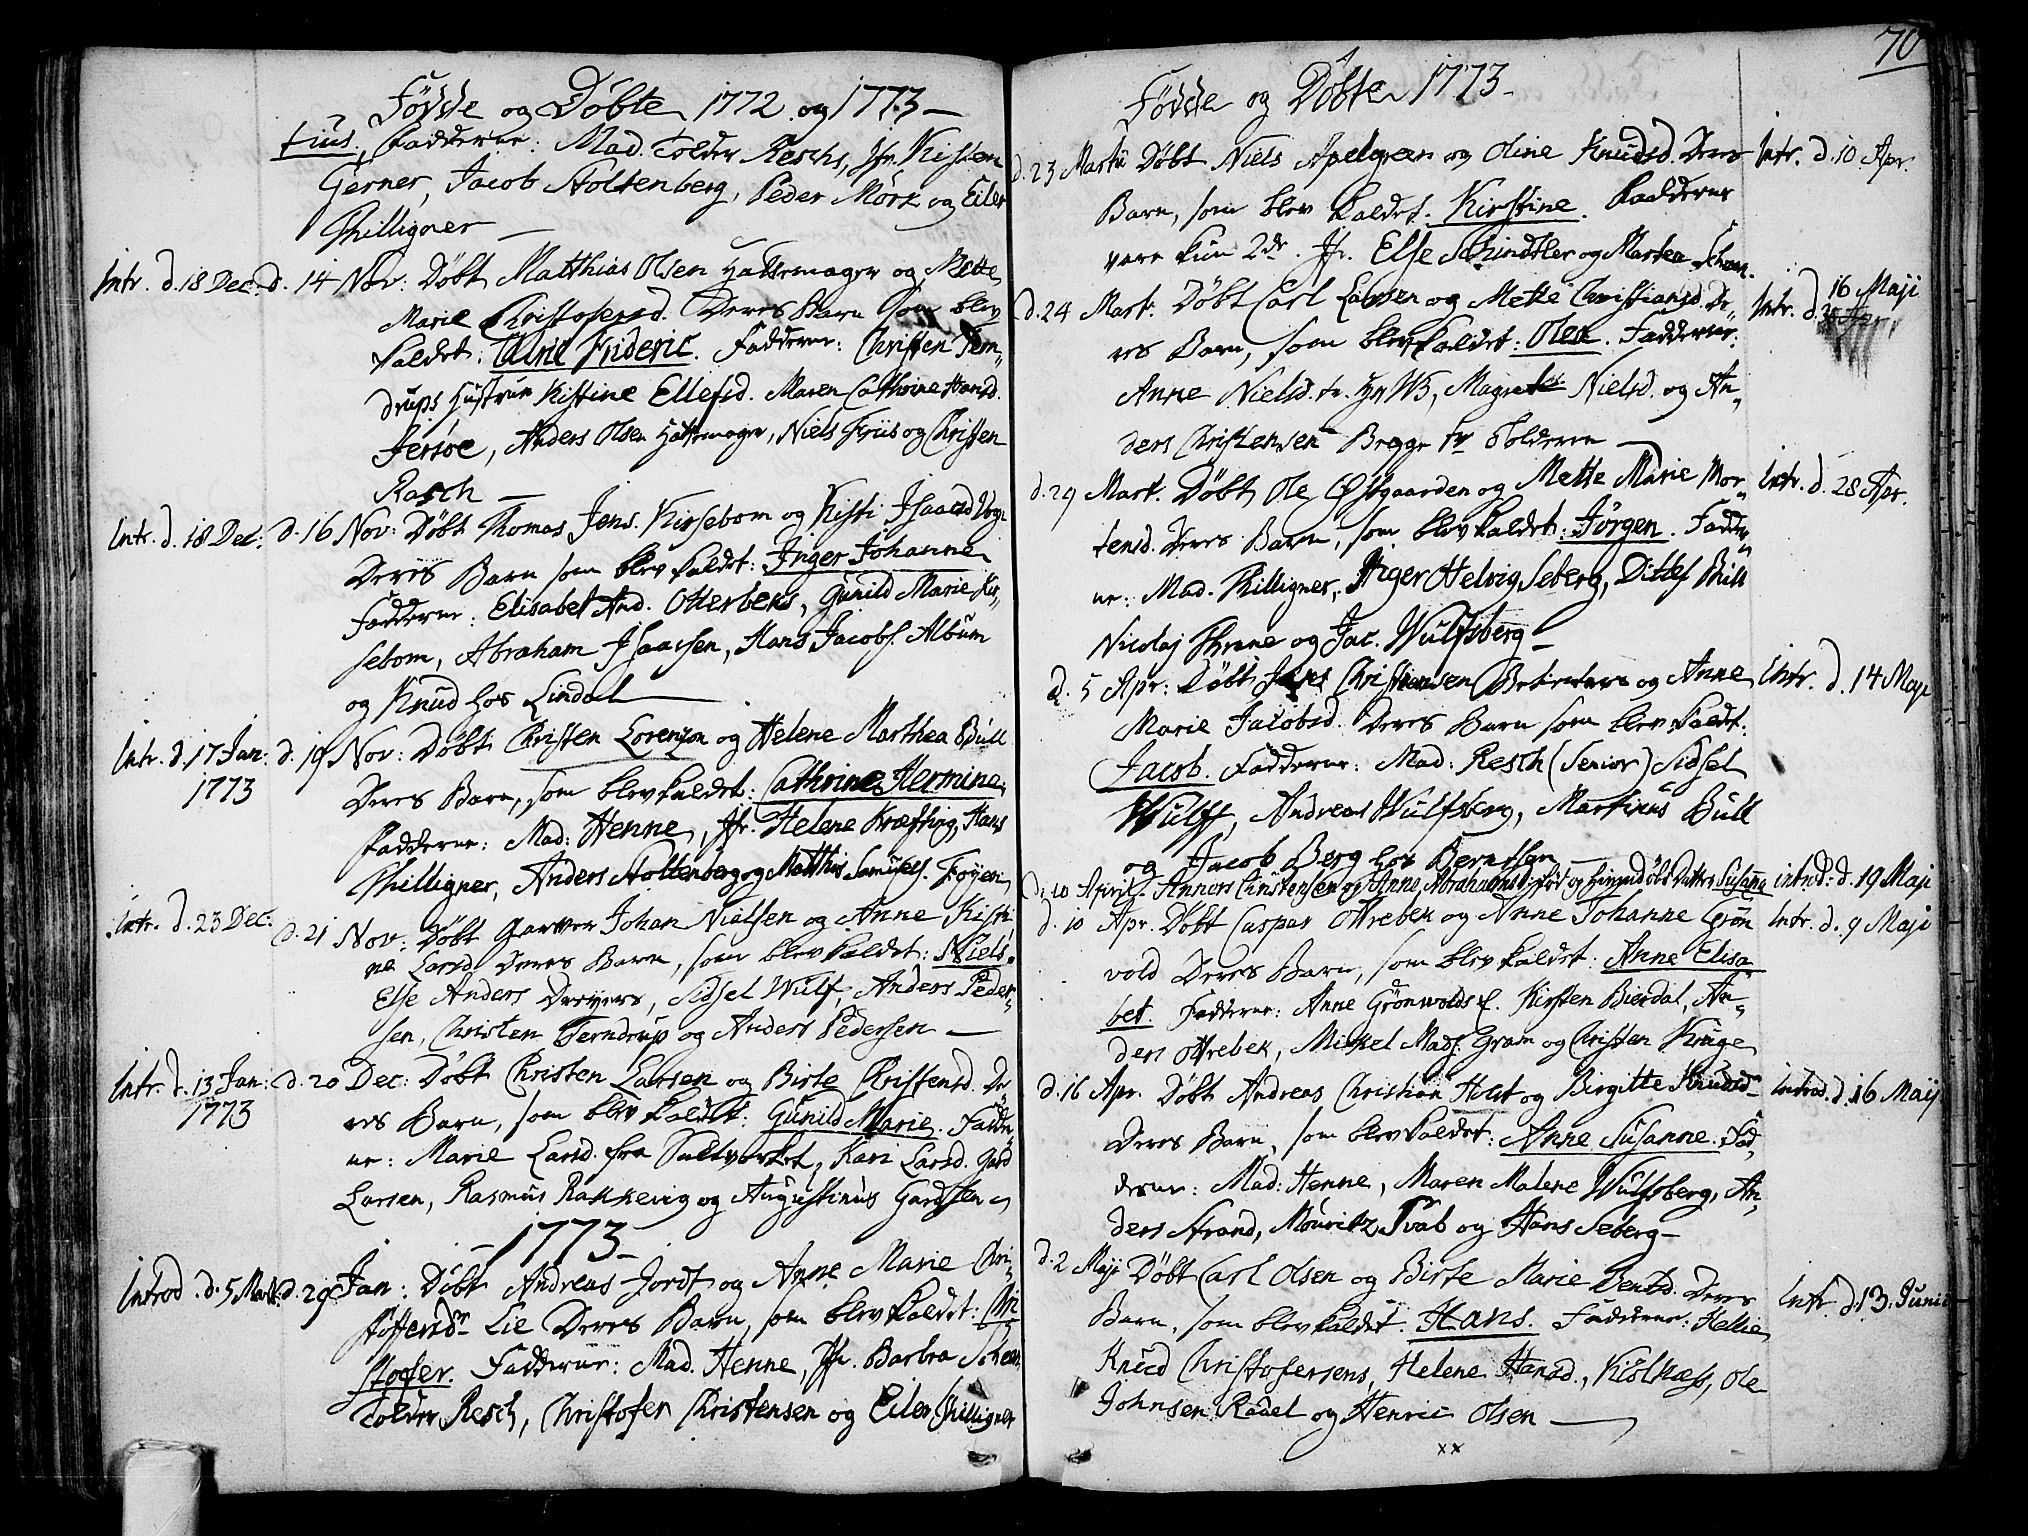 Födde og Döbte 1772 og 1773
tius. Fadderne: Mad. Tolder Reschs, Jfr. Kisten
Gerner, Jacob Stoltenberg, Peder Mörk og Eiler
Philligner
Intr. d. 18 Dec: d. 14 Nov: Döbt Matthias Olsen Hattemager og Mette
Marie Christofersd. Deres Barn som blev
kaldet: Ulric Frideric. Fadderne: Christen Tern„
drups Hustrue Kistine Ellefsd. Maren Cathrine Hansd.
Jersöe, Anders Olsen Hattemager, Niels Friis og Christen
Rasch
Intr. d. 18 Dec: d. 16 Nov: Döbt Thomas Jens. Kirsebom og Kisti Isaacsd Vogt
Deres Barn som blev kaldet: Inger Johanne
Fadderne: Elisabet And. Otterbeks, Gunild Marie Kir„
sebom, Abraham Isaacsen, Hans Jacobs. Album
og Knud hos Lindal
Intr. d. 17 Jan: d. 19 Nov: Döbt Christen Lorenzon og Helene Marthea Bull
1773 Deres Barn, som blev kaldet: Cathrine Hermine
Fadderne: Mad: Henne, Jfr. Helene Kræfting, Hans
Philligner, Anders Stoltenberg og Matthis Samuels. Foyen
Intr. d. 23 Dec: d. 21 Nov: Döbt Garver Johan Nielsen og Anne Kisti
ne Larsd. Deres Barn, som blev kaldet: Niels.
Else Anders Dreyers, Sidsel Wulf, Anders Peder„
sen, Christen Terndrup og Anders Pedersen
Intr. d. 13 Jan: d. 20 Dec: Döbt Christen Larsen og Birte Christensd. De
1773 res Barn, som blev kaldet: Gunild Marie. Fadde„
ne: Marie Larsd. fra Saltverket, Kari Larsd. Gard
Larsen, Rasmus Rakkevig og Augustinus Gardsten
1773
Introd. d. 5 Mart: d. 29 Jan: Döbt Andreas Jordt og Anne Marie Chri„
stoffersdr Lie Deres Barn, som blev kaldet: Chri
stoffer. Fadderne: Mad. Henne, Jfr. Barbra Scheen
Tolder Resch, Christofer Christensen og Eiler Philligner
70
Födde og Döbte 1773
d. 23 Martii Döbt Niels Apelgreen og Oline Knudsd. Deres Intr. d. 10 Apr.
Barn, som blev kaldet: Kirstine. Fadderne
vare kun 2de. Jfr. Else Schindtler og Marten
d. 24 Mart. Döbt Carl Larsen og Mette Christiansd. De„ Intr. d. 16 Maji
res Barn, som blev kaldet: Olea. Fadderne:
Anne Nielsd. Magrete Nielsd. og An„
ders Christensen Begge Tolderen
d. 29 Mart. Döbt Ole Östgaarden og Mette Marie Mor„ Intr. d. 28 Apr.
tensd. Deres Barn, som blev kaldet: Jörgen. Fadde„
ne: Mad. Philligner, Inger Helvig Seberg, Ditlef Bull
Nicolaj Thrane og Jac. Wulfsberg
d. 5 Apr: Döbt Jens Christensen og Anne Intr. d. 14 Maji
Marie Jacobsd. Deres Barn som blev kaldt:
Jacob. Fadderne: Mad: Resch (Senior) Sidsel
Wulff, Andreas Wulfsberg, Martinus Bull
og Jacob Berg hos Berntsen
d: 10 April Anners Christensen og Anne Abrahamsd. Datter Susanne introd: d. 19 Maji
d. 10 Apr. Döbt Caspar Ottrebek og Anne Johanne Grön Intr. d. 9 Maji
vold Deres Barn, som blev kaldet: Anne Elisa„
bet. Fadderne: Anne Grönwolds E. Kirsten Bierdal, An„
ders Ottrebek, Mickel Mads. Gram og Christen Kruge
d. 16 Apr. Döbt Andreas Christian Holst og Birgitte Knudsd Introd. d. 16 Maji
Deres Barn, som blev kaldet: Anne Susanne. Fad„
derne: Mad: Henne, Maren Malene Wulfsberg, An„
ders Strand, Mouritz Svab og Hans Seberg
d. 2 Maji Döbt Carl Olsen og Birte Marie Bentsd. Deres Intr. d. 13. Junii
Barn, som blev kaldet. Hans. Fadderne: Hellie
Knud Christofersens, Helene Hansd., Ole
Johnsen Radel og Henric Olsen
xx